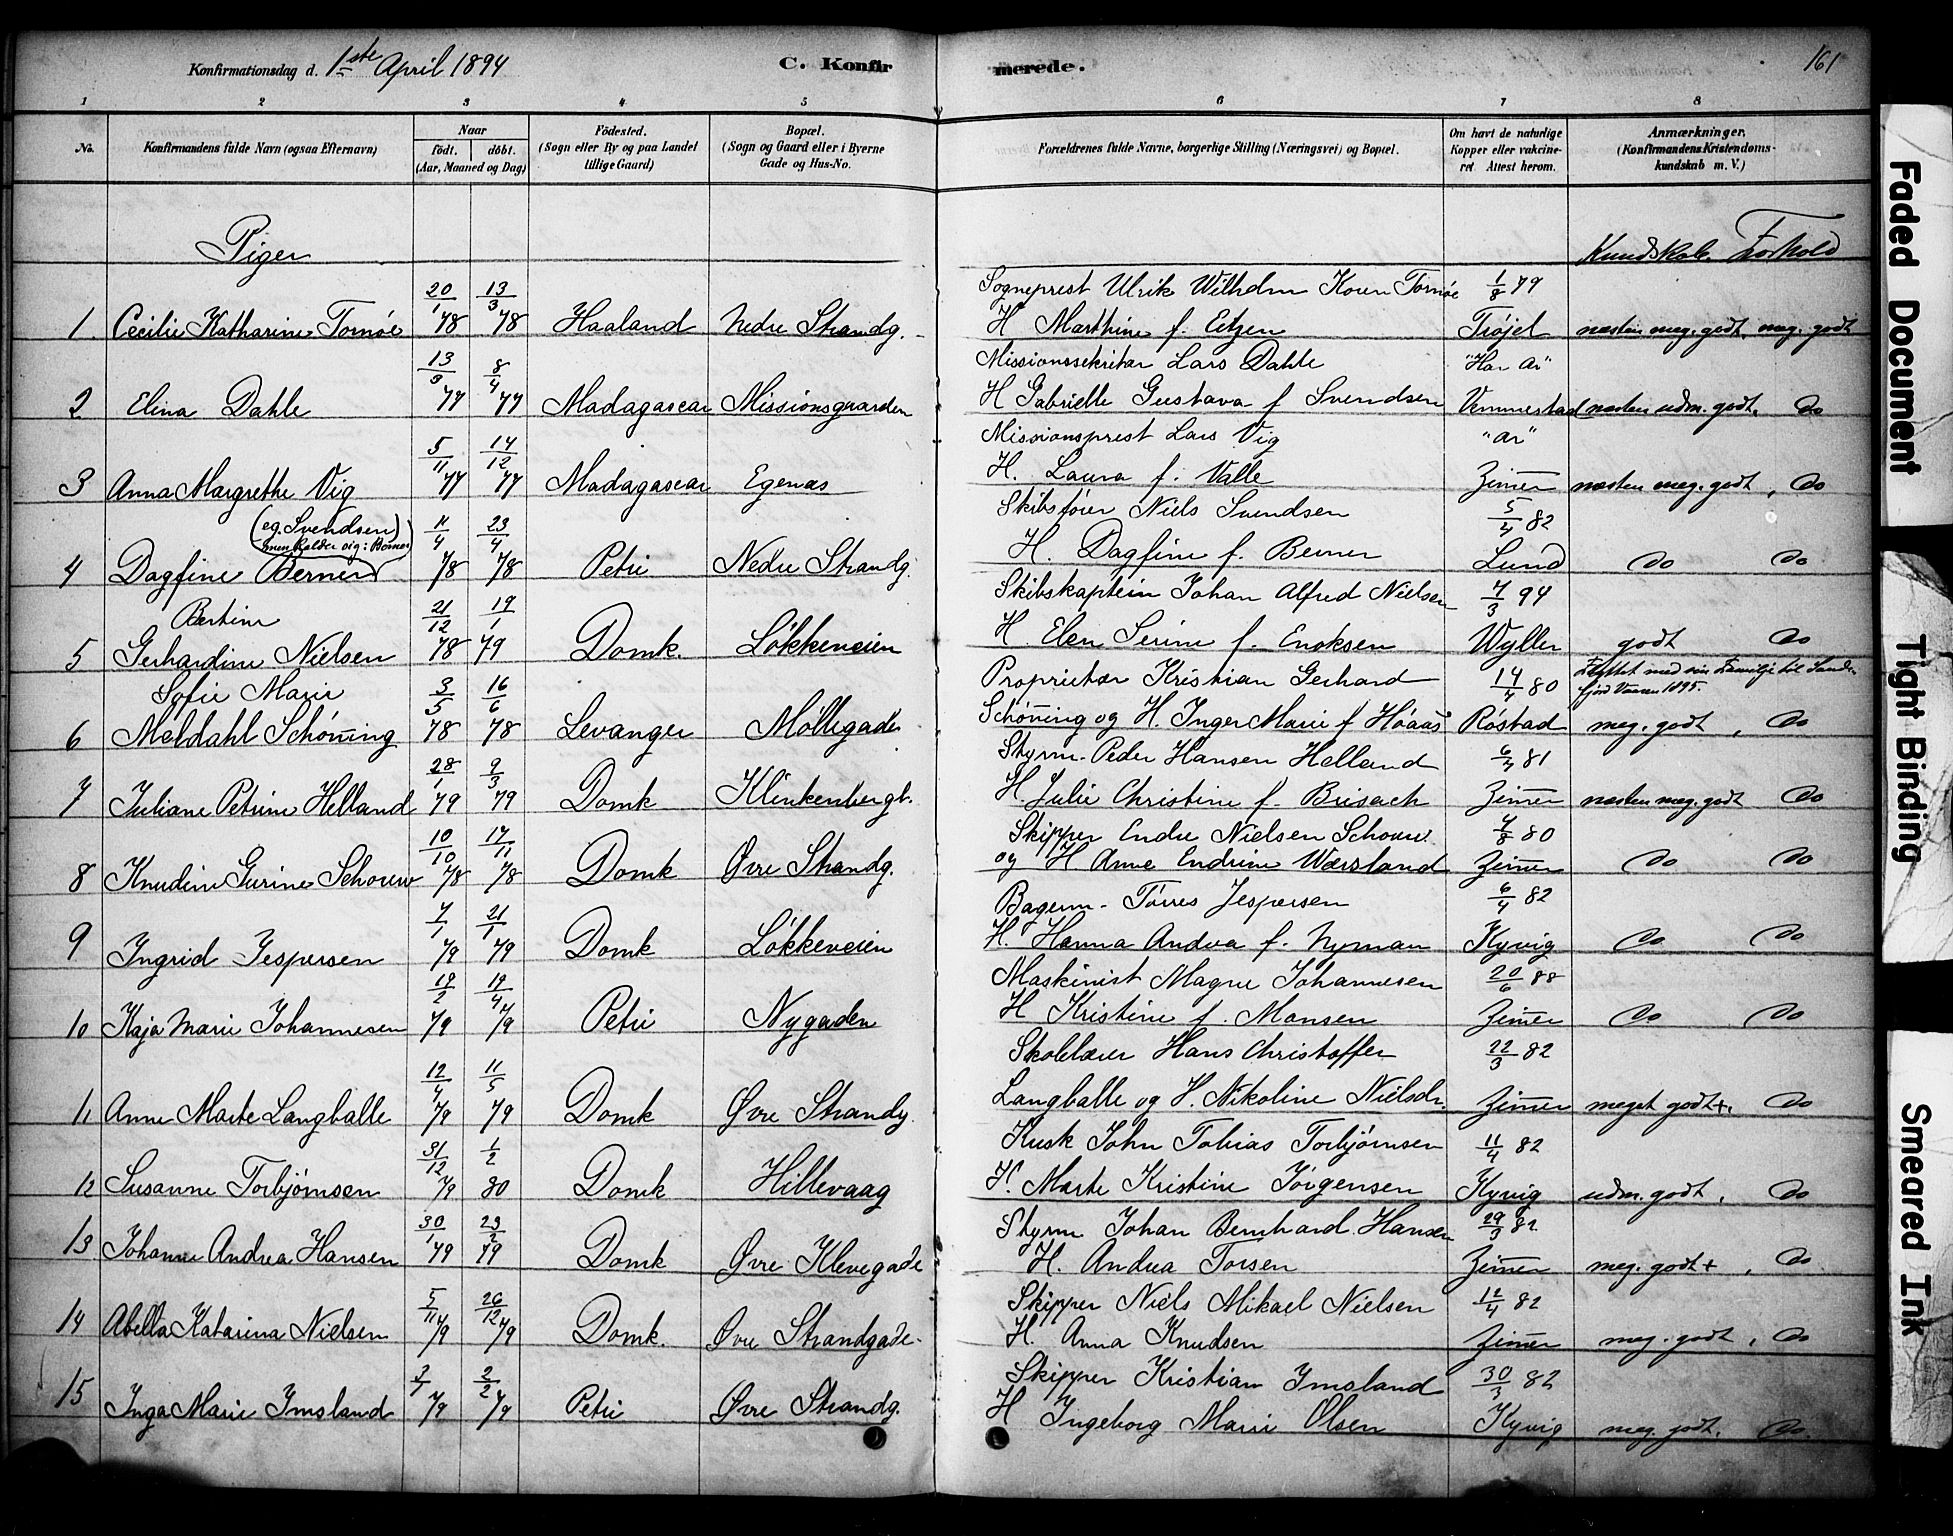 Konfirmationsdag d. 1ste April 1894
C. Konfirmerede.
161
1 2 3 4 5 6 7 8
No.
Konfirmandens fulde Navn (ogsaa Efternavn)
Naar
født. døbt.
(Aar, Maaned og Dag)
Födested.
(Sogn eller By og paa Landet
tillige Gaard)
Bopæl.
(Sogn og Gaard eller i Byerne
Gade og Hus-No.
Forældrenes fulde Navne, borgerlige Stilling (Næringsvei) og Bopæl.
Om havt de naturlige
Kopper eller vakcine-
ret Attest herom.
Anmærkninger.
(Konfirmandens Kristendoms-
kundskab m. V.)
Piger
Kundskab. Forhold
20/1 13/3 Sogneprest Ulrik Wilhelm Koren Tornøe 1/8 79
1. Cecilie Katharine Tornøe 78 78 Haaland Nedre Strandg. H Marthine f. Eitzen Trøjel næsten meg. godt. meg. godt
13/3 8/4 Missionssekretær Lars Dahle "Har ar"
2 Elina Dahle 77 77 Madagascar Missionsgaarden H Gabrielle Gustava f Svendsen Vemmestad næsten udm. godt. do
5/11 14/12 Missionsprest Lars Vig "ar"
3 Anna Margrethe Vig 77 77 Madagascar Egenæs H. Laura f. Valle Zimer næsten meg. godt, do
(eg. Svendsen) 11/4 23/4 Skibsfører Niels Svendsen 5/4 82
men kalder sig: Berner
4 Dagfine Berner 78 78 Petri Nedre Strandg. H. Dagfine f. Berner Lund do do
Bertine 21/12 19/1 Skibskaptein Johan Alfred Nielsen 7/3 94
5 Gerhardine Nielsen 78 79 Domk. Løkkeveien H. Elen Serine f. Enoksen Wyller godt do
Sofie Marie 3/5 16/6 Proprietær Kristian Gerhard 14/4 80 Flyttet med sin Familje til Sande-
fjord Vaaren 1895.
6 Meldahl Schøning 78 78 Levanger Møllegade Schøning og H. Inger Marie f Høaas Røstad meg. godt, do
28/1 9/3 Styrm. Peder Hansen Helland 6/4 81
7 Juliane Petrine Helland 79 79 Domk Klinkenbergt. H. Julie Christine f. Brisach Zimer næsten meg. godt do
10/10 17/11 Skipper Endre Nielsen Schouw. 4/8 80
8 Knudine Gurine Schouw 78 78 Domk Øvre Strandg. og H Anne Endrine Wærsland Zimer do do
7/1 21/1 Bagerm. Tørres Jespersen 6/4 82
9 Ingrid Jespersen 79 79 Domk Løkkeveien H. Hanna Andrea f. Nyman Kyvig do do
17/2 19/4 Maskinist Magne Johannesen 20/6 88
10 Kaja Marie Johannesen 79 79 Petri Nygaden H Kristine f. Monsen Zimer do do
12/4 11/5 Skolelærer Hans Christoffer 22/3 82
11 Anne Marte Langballe 79 79 Domk Øvre Strandg. Langballe og H. Nikoline Nielsdr. Zimer meget godt+. do
31/12 1/2 Kusk John Tobias Torbjørnsen 11/4 82
12 Susanne Torbjørnsen 79 80 Domk Hillevaag H. Marte Kristine Jørgensen Kyvig udm. godt. do
30/1 23/2 Styrm Johan Bernhard Hansen 29/3 82
13 Johanne Andrea Hansen 79 79 Domk Øvre Klevegade H. Andrea Torsen Zimer meg. godt+, do
5/11 26/12 Skipper Niels Mikael Nielsen 12/4 82
14 Abella Katarina Nielsen 79 79 Domk. Øvre Strandgade. H. Anna Knudsen Zimer meg. godt, do
2/2 Skipper Kristian Imsland 30/3 82
15 Inga Marie Imsland 79 79 Petri Øvre Strandg. H Ingeborg Marie Olsen Kyvig meg. godt. do.
Faded Document
Tight Binding
Smeared Ink